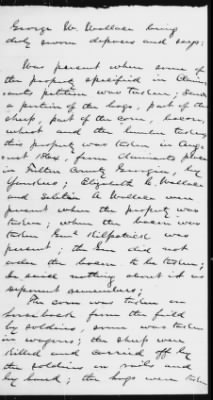 George W. Wallace being
duly sworn deposes and says:
Was present when some of
the property specified in Claim-
ants petition was taken; Saw
a portion of the hogs, part of the
sheep, part of the corn, bacon,
wheat and the lumber taken
this property was taken in Aug-
ust, from Claimants place
in Fulton County Georgia, by
Yankees; Elizabeth C. Wallace
and A Wallace were
present when the property was
taken; when the bacon was
taken Genl Kilpatrick was
present; the Gen did not
order the bacon to be taken;
he said nothing about it as
deponent remembers;
The corn was taken on
horseback from the field
by soldiers, some was taken
in wagons; the sheep were
killed and carried off by
the soldiers in and
by hand; the hogs were taken